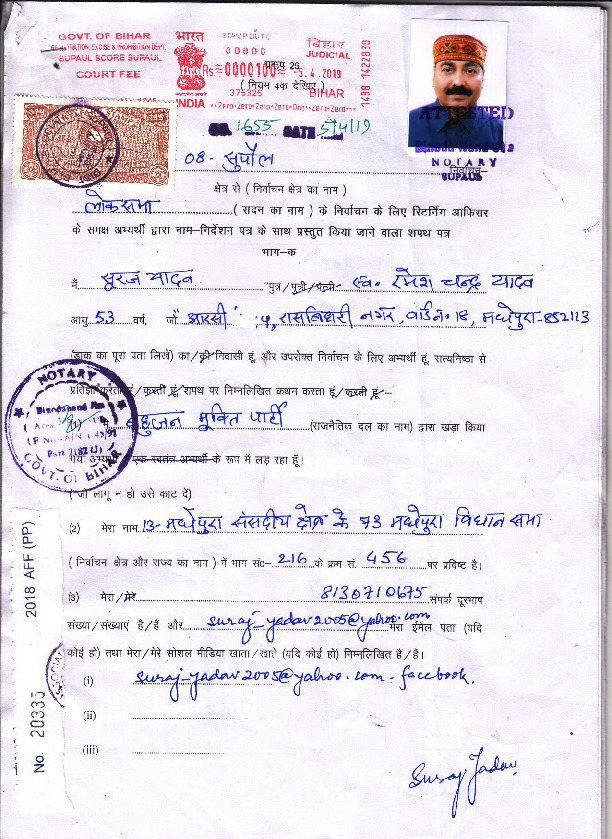 GOVT. OF BIHAR
REGISTRATION, EXCISE & PROHIBITION DEPT.
SUPAUL SCORE SUPAUL
COURT FEE
भारत
INDIA
STAMP DUTY
00000
Rs.≡0000100≡ - 5.4.2019
375325
बिहार
JUDICIAL
BIHAR
1498 1422830
Zero-Zero-Zero-Zero-One-Zero-Zero
प्ररूप 26
( नियम 4क देखिए )
1655 DATE 5/4/19
ATTESTED
NOTARY
SUPAUL
08- सुपौल निर्वाचन-
क्षेत्र से ( निर्वाचन क्षेत्र का नाम )
लोकसभा ( सदन का नाम ) के निर्वाचन के लिए रिटर्निंग आफिसर
के समक्ष अभ्यर्थी द्वारा नाम–निर्देशन पत्र के साथ प्रस्तुत किया जाने वाला शपथ पत्र
भाग–क
मैं, सूरज यादव पुत्र/पुत्री/पत्नी- स्व० रमेश चन्द्र यादव
आयु 53 वर्ष, जो आरसी 5, रासबिहारी नगर, वार्ड न० 18, मधेपुरा-852113
(डाक का पूरा पता लिखें) का/की निवासी हूं, और उपरोक्त निर्वाचन के लिए अभ्यर्थी हूं, सत्यनिष्ठा से
प्रतिज्ञा करता हूं/करती हूं/शपथ पर निम्नलिखित कथन करता हूं/करती हूं–
(1) मैं बहुजन मुक्ति पार्टी (राजनैतिक दल का नाम) द्वारा खड़ा किया
गया अभ्यर्थी/एक स्वतंत्र अभ्यर्थी के रूप में लड़ रहा हूँ।
( जो लागू न हो उसे काट दें)
(2) मेरा नाम 13-मधेपुरा संसदीय क्षेत्र के 73 मधेपुरा विधान सभा
( निर्वाचन क्षेत्र और राज्य का नाम ) में भाग सं०- 216 के क्रम सं. 456 पर प्रविष्ट है।
(3) मेरा/मेरे 8130710675 संपर्क दूरभाष
संख्या/संख्याएं है/हैं और suraj_yadav2005@yahoo.com मेरा ईमेल पता (यदि
कोई हो) तथा मेरा/मेरे सोशल मीडिया खाता/खाते (यदि कोई हो) निम्नलिखित है/है।
(i) suraj_yadav2005@yahoo.com-facebook.
(ii)
(iii)
Suraj Yadav
NOTARY
GOVT. OF BIHAR
No. 20335 2018 AFF (PP)